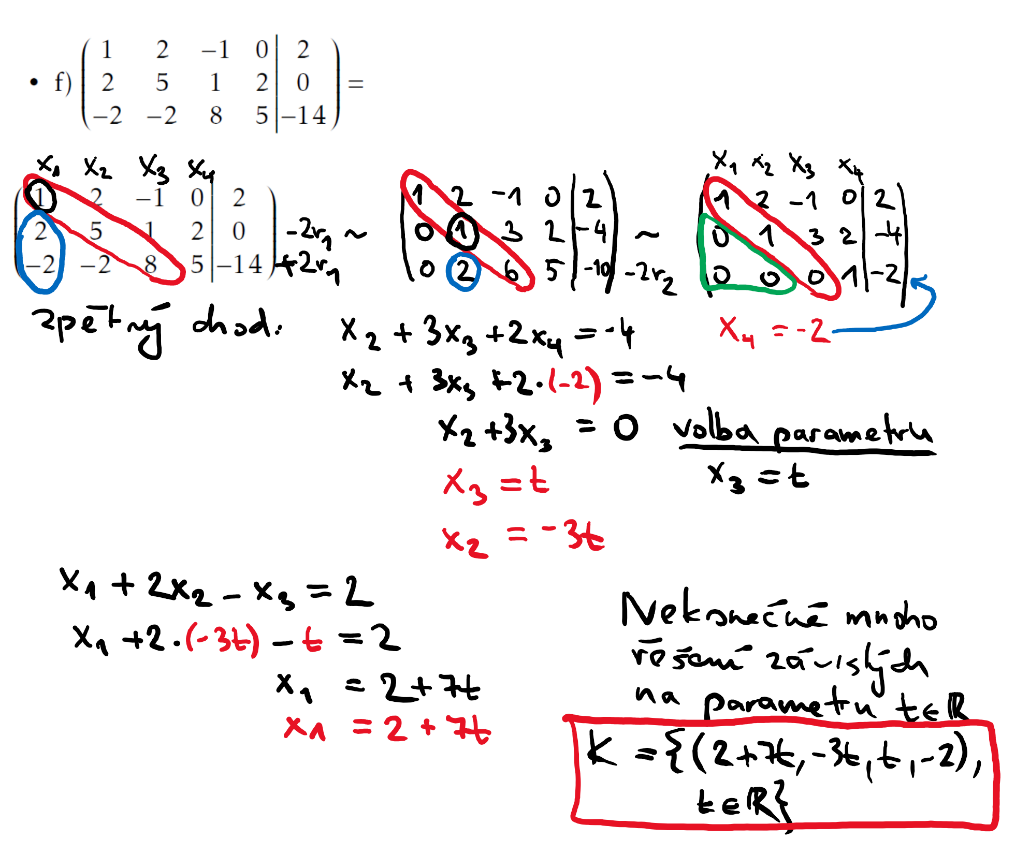 • f) ( 1 2 −1 0 | 2 )
( 2 5 1 2 | 0 ) =
( −2 −2 8 5 | −14 )
x₁ x₂ x₃ x₄
( 1 2 −1 0 | 2 )
( 2 5 1 2 | 0 ) −2r₁ ~
( −2 −2 8 5 | −14 ) +2r₁
( 1 2 −1 0 | 2 )
( 0 1 3 2 | −4 ) ~
( 0 2 6 5 | −10 ) −2r₂
x₁ x₂ x₃ x₄
( 1 2 −1 0 | 2 )
( 0 1 3 2 | −4 )
( 0 0 0 1 | −2 )
x₄ = −2
zpětný chod:
x₂ + 3x₃ + 2x₄ = −4
x₂ + 3x₃ + 2·(−2) = −4
x₂ + 3x₃ = 0 volba parametru
x₃ = t
x₃ = t
x₂ = −3t
x₁ + 2x₂ − x₃ = 2
x₁ + 2·(−3t) − t = 2
x₁ = 2 + 7t
x₁ = 2 + 7t
Nekonečně mnoho
řešení závislých
na parametru t∈ℝ
K = {(2+7t, −3t, t, −2),
t∈ℝ}